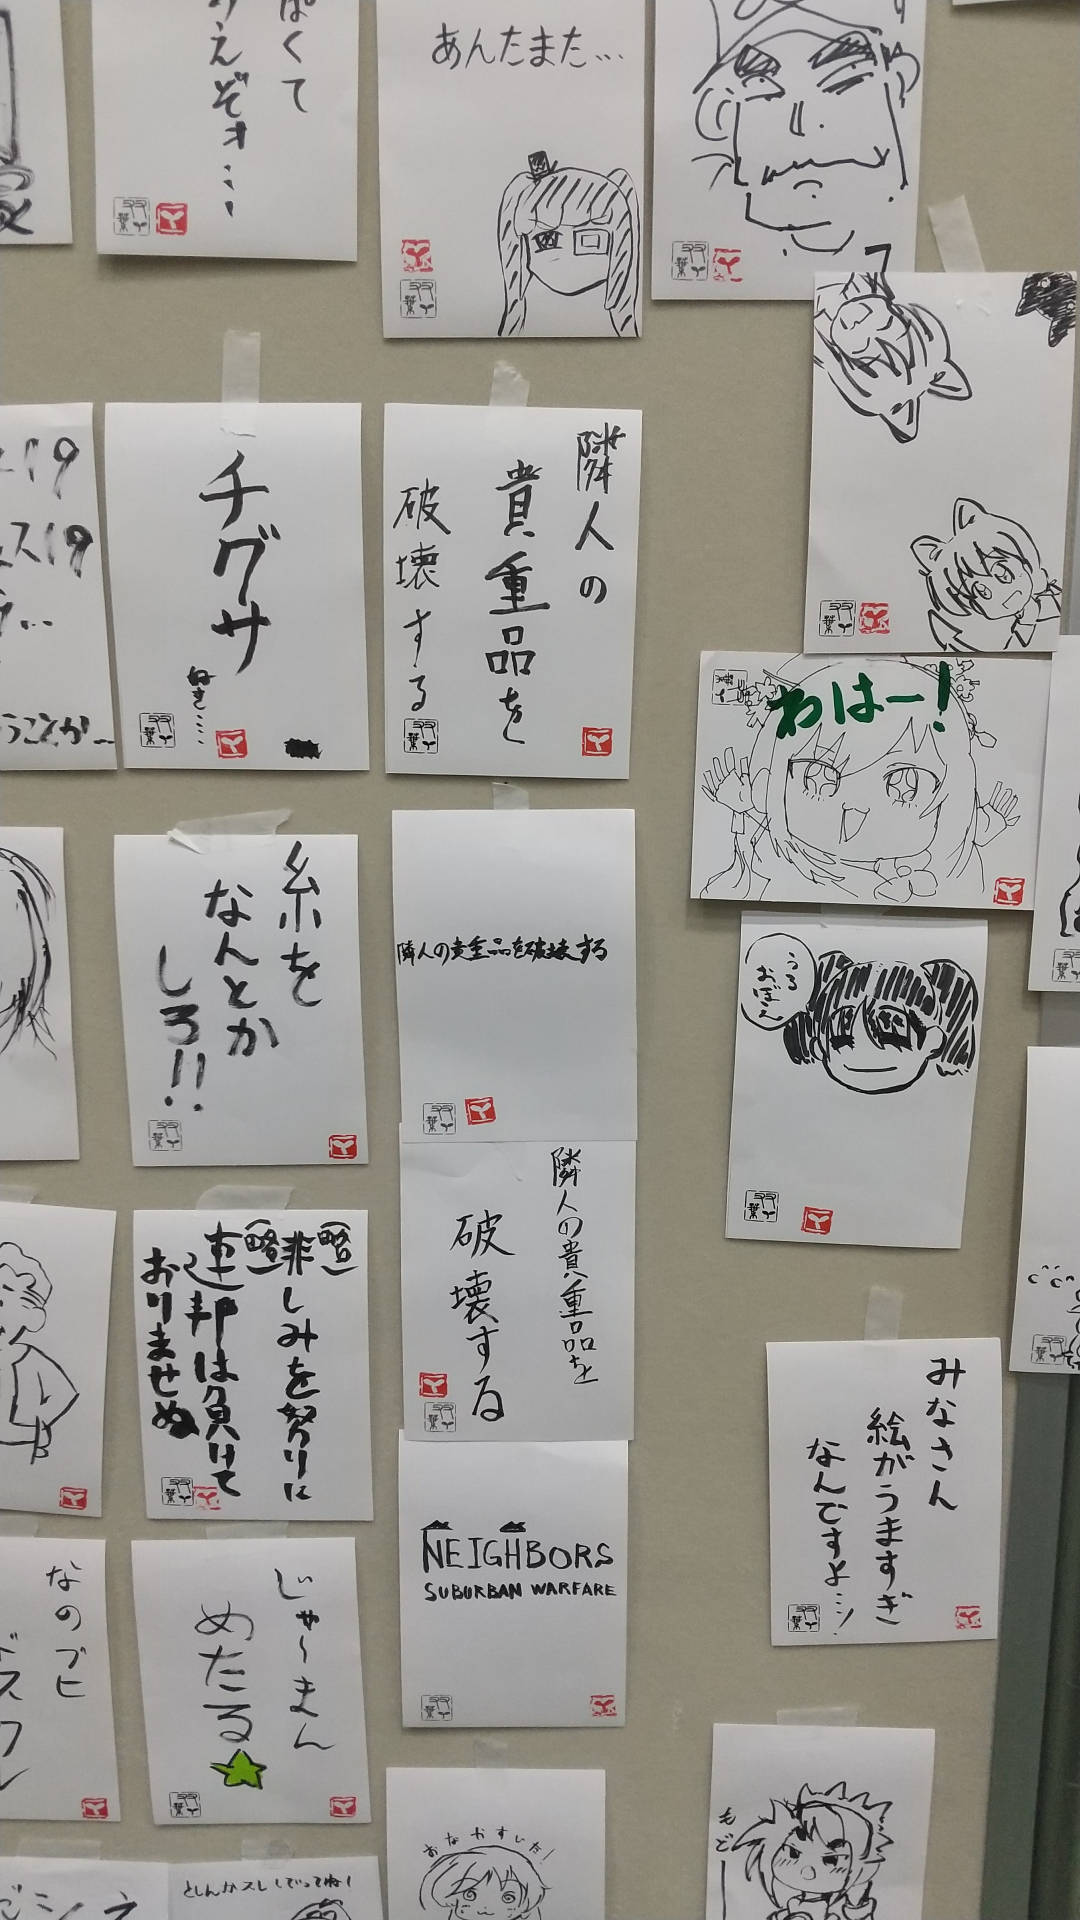 ぱくて
うえぞォ…
あんたまた…
19
ス19
うことか…
チグサ
ぬき…
隣人の
貴重品を
破壊する
わはー!
糸を
なんとか
しろ!!
隣人の貴重品を破壊する
うる
おぼえ
隣人の貴重品を
破壊する
悲しみを努りに
連邦は負けて
おりませぬ
NEIGHBORS
SUBURBAN WARFARE
みなさん
絵がうますぎ
なんですよ…!
なのブヒ
じゃ〜まん
めたる
おなかすいた!
もど